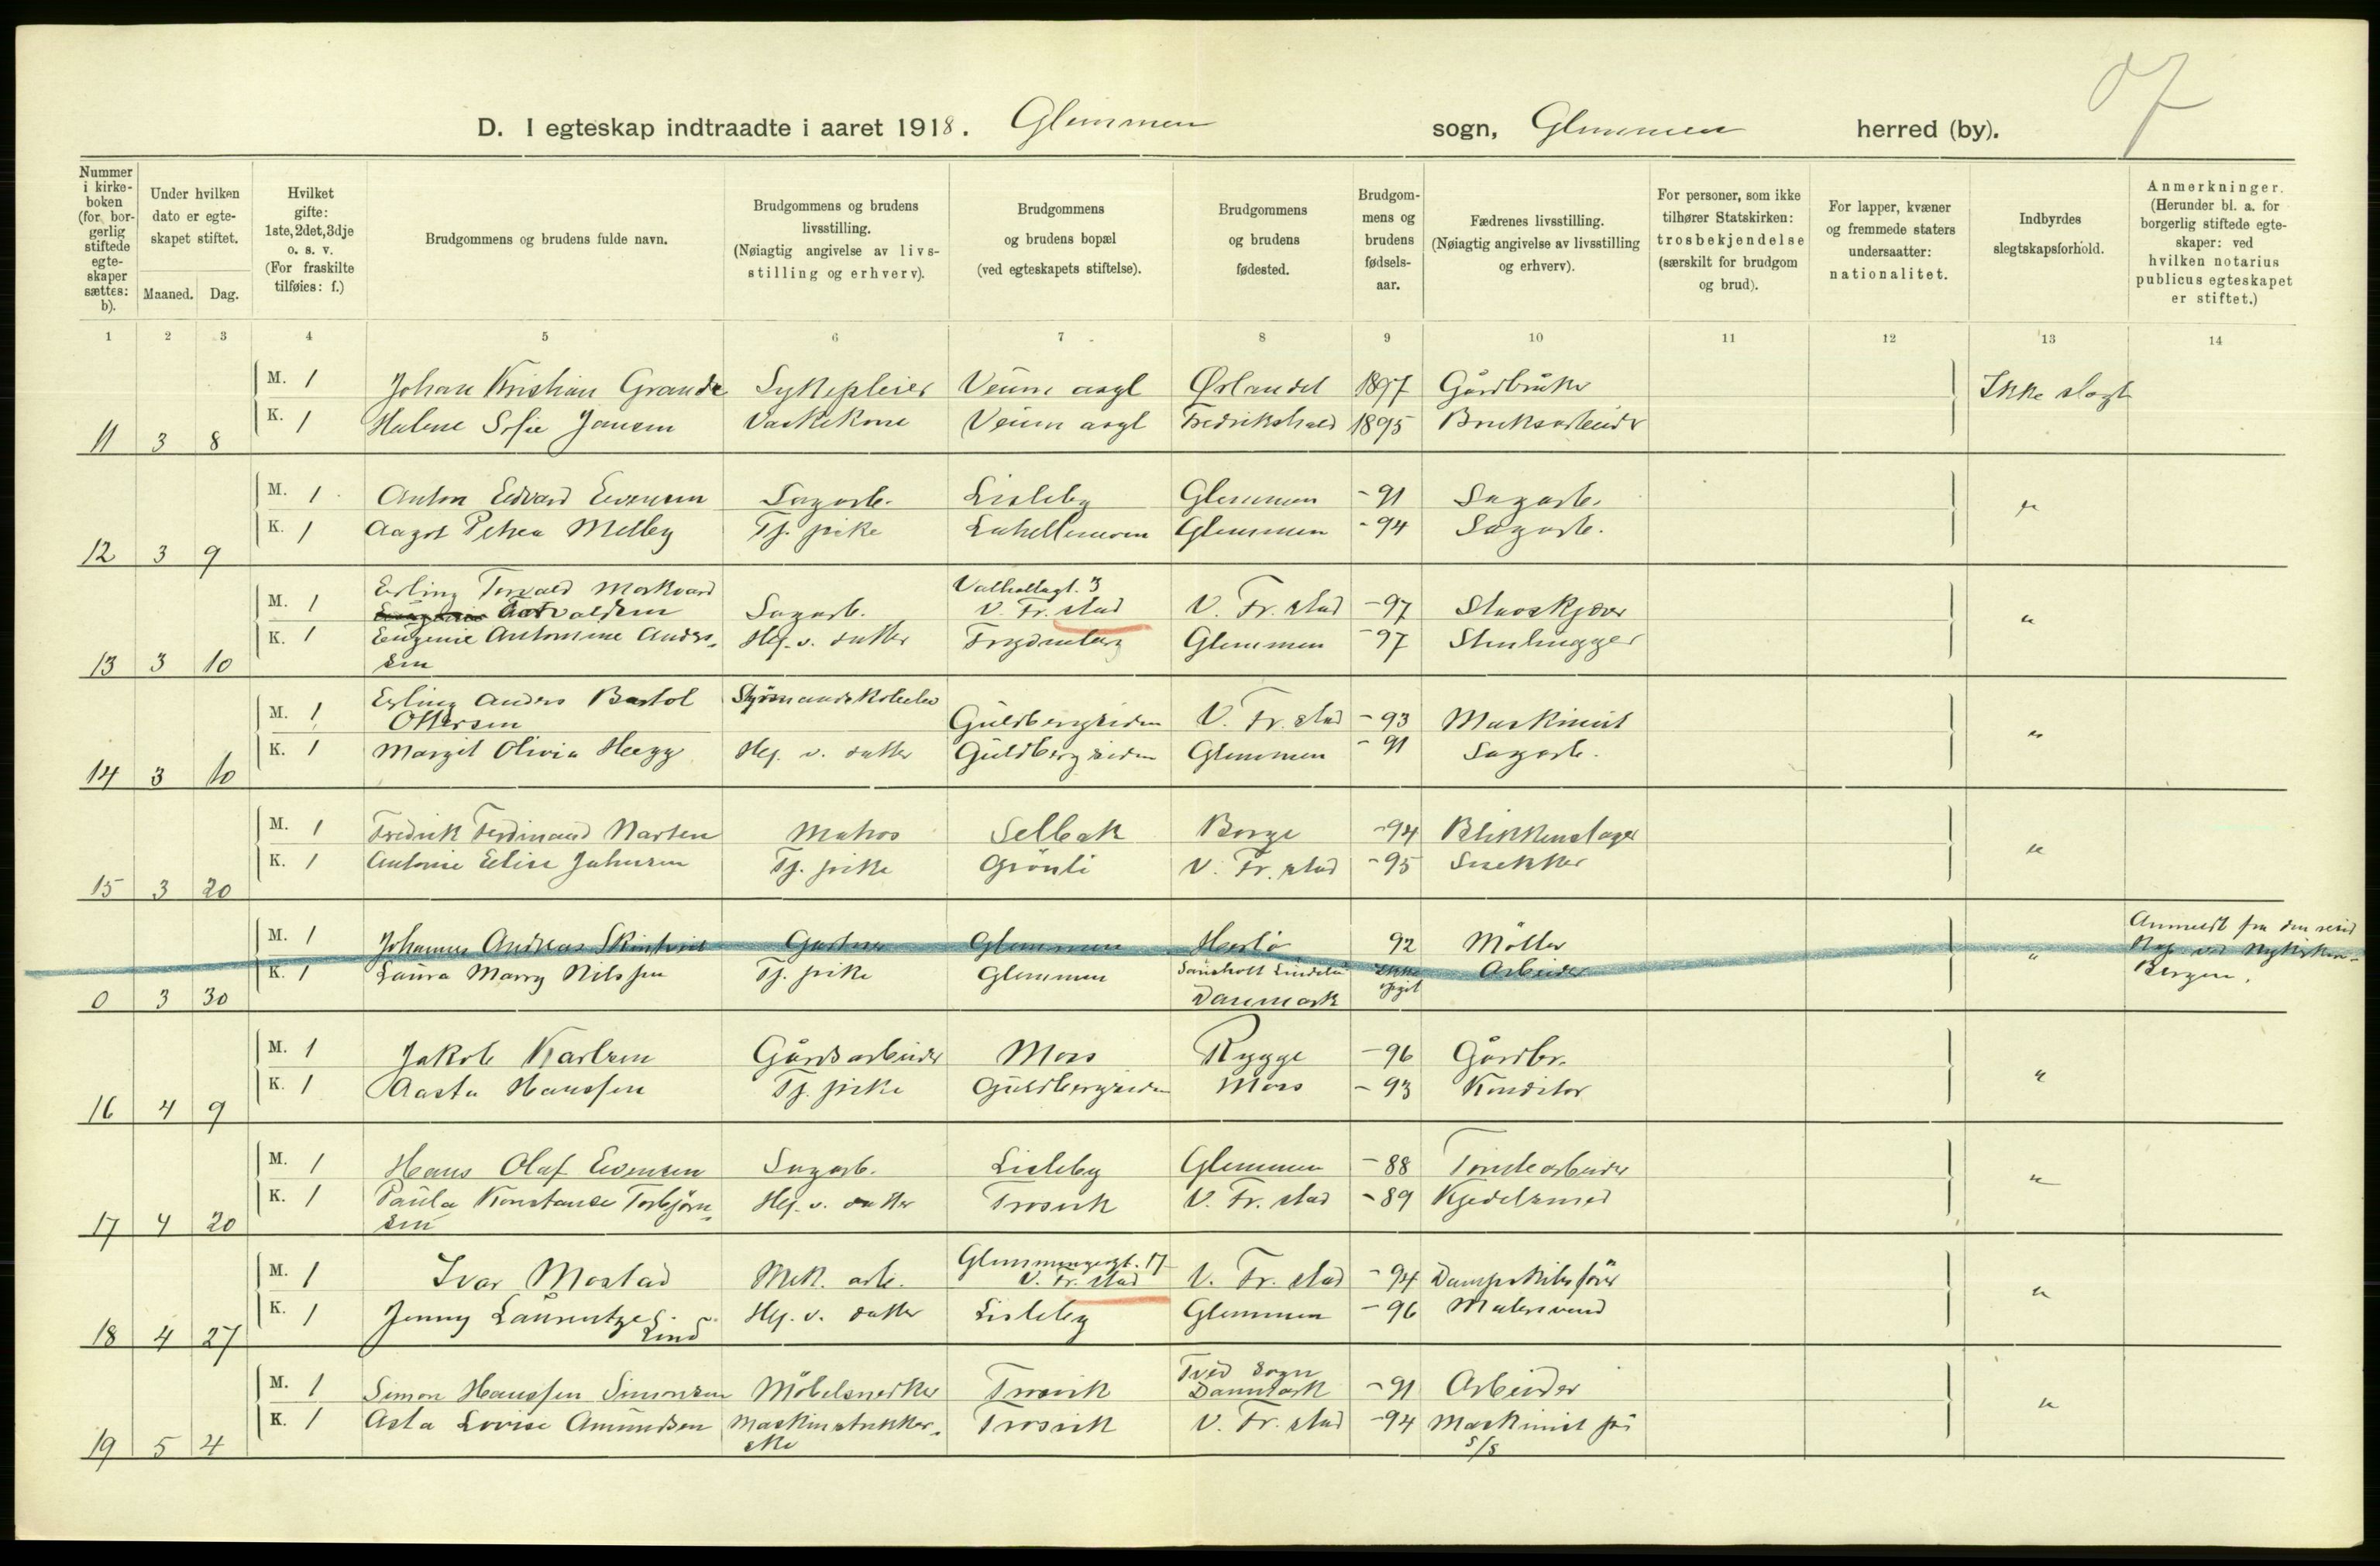 D. I egteskap indtraadte i aaret 1918. Glemmen sogn, Glemmen herred (by).
Nummer i kirke- boken (for bor- gerlig stiftede egte- skaper sættes: b).
Under hvilken dato er egte- skapet stiftet.
Maaned. Dag.
Hvilket gifte: 1ste, 2det, 3dje o. s. v. (For fraskilte tilføies: f.)
Brudgommens og brudens fulde navn.
Brudgommens og brudens livsstilling. (Nøiagtig angivelse av livs- stilling og erhverv).
Brudgommens og brudens bopæl (ved egteskapets stiftelse).
Brudgommens og brudens fødested.
Brudgom- mens og brudens fødsels- aar.
Fædrenes livsstilling. (Nøiagtig angivelse av livsstilling og erhverv).
For personer, som ikke tilhører Statskirken: trosbekjendelse (særskilt for brudgom og brud).
For lapper, kvæner og fremmede staters undersaatter: nationalitet.
Indbyrdes slegtskapsforhold.
Anmerkninger. (Herunder bl. a. for borgerlig stiftede egte- skaper: ved hvilken notarius publicus egteskapet er stiftet.)
1 2 3 4 5 6 7 8 9 10 11 12 13 14
M. 1 Johan Kristian Grande Sykepleier Veum asyl Ørlandet 1897 Gårdbruker Ikke slegt
K. 1 Helene Sofie Jansen Vaskekone Veum asyl Fredrikshald 1895 Bruksarbeider
11 3 8
M. 1 Anton Edvard Evensen Sagarb. Lisleby Glemmen -91 Sagarb. "
K. 1 Aagot Petrea Melby Tj. pike Glemmen -94 Sagarb.
12 3 9
Erling Torvald Markvard Valhallagt. 3
M. 1 Sagarb. V. Fr. stad V. Fr. stad -97 "
K. 1 Eugenie Antonine Anders- Hej. v. datter Frydenberg Glemmen -97 Stenhugger
13 3 10 sen
Erling Anders Bartol Styrmandskoleelev
M. 1 Ottersen Guldbergsiden V. Fr. stad -93 Maskinist "
K. 1 Margit Olivia Hegg Hej. v. datter Guldbergsiden Glemmen -91 Sagarb.
14 3 10
M. 1 Fredrik Ferdinand Narten Matros Selbak Borge -94 Blikkenslager "
K. 1 Antonie Elise Johnsen Tj. pike Grönli V. Fr. stad -95 Snekker
15 3 20
Anmeldt fra den resid
M. 1 Johannes Andreas Gartner Glemmen Herlö 92 Möller " Kap. ved Nykirken-
K. 1 Laura Marry Nilssen Tj. pike Glemmen Ikke Arbeider Bergen.
0 3 30 Danmark opgit
M. 1 Jakob Karlsen Gårdsarbeider Moss Rygge -96 Gårdbr. "
K. 1 Aasta Hanssen Tj. pike Guldbergsiden Moss -93 Konditor
16 4 9
M. 1 Hans Olaf Evensen Sagarb. Lisleby Glemmen -88 Tomtearbeider "
K. 1 Paula Konstance Torbjörn- Hej. v. datter Trosvik V. Fr. stad -89 Kjedelsmed
17 4 20 sen
Glemmengegt. 17
M. 1 Ivar Mostad Mek. arb. V. Fr. stad V. Fr. stad -94 Dampskibsförer "
K. 1 Jenny Laurentze Hej. v. datter Lisleby Glemmen -96 Malersvend
18 4 27 Lund
Tved Sogn
M. 1 Simon Hanssen Simonsen Möbelsnekker Trosvik Danmark -91 Arbeider "
K. 1 Asta Lovise Amundsen Maskinstrikker- Trosvik V. Fr. stad -94 Maskinist på
19 5 4 ske s/s